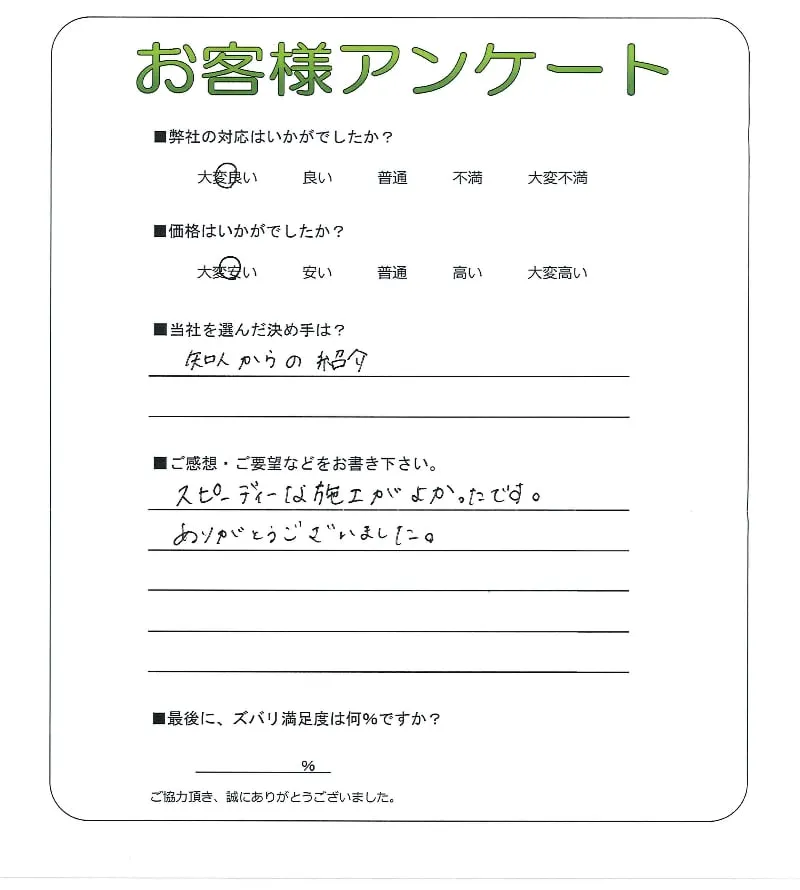 お客様アンケート
■弊社の対応はいかがでしたか？
大変良い 良い 普通 不満 大変不満
■価格はいかがでしたか？
大変安い 安い 普通 高い 大変高い
■当社を選んだ決め手は？
知人からの紹介
■ご感想・ご要望などをお書き下さい。
スピーディーな施工がよかったです。
ありがとうございました。
■最後に、ズバリ満足度は何％ですか？
％
ご協力頂き、誠にありがとうございました。